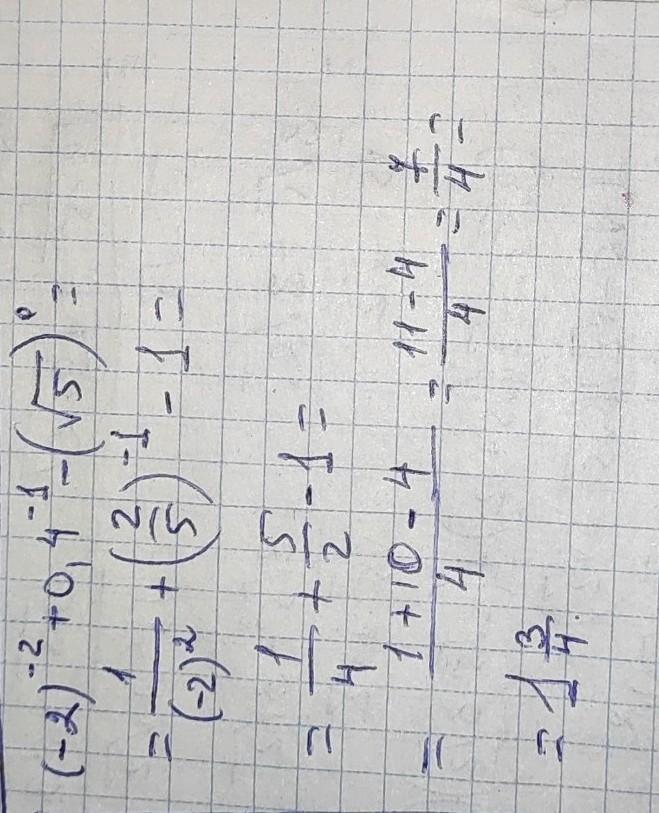 (-2)^-2 + 0,4^-1 - (√5)^0 =
= 1/(-2)^2 + (2/5)^-1 - 1 =
= 1/4 + 5/2 - 1 =
= (1 + 10 - 4)/4 = (11 - 4)/4 = 7/4 =
= 1 3/4.